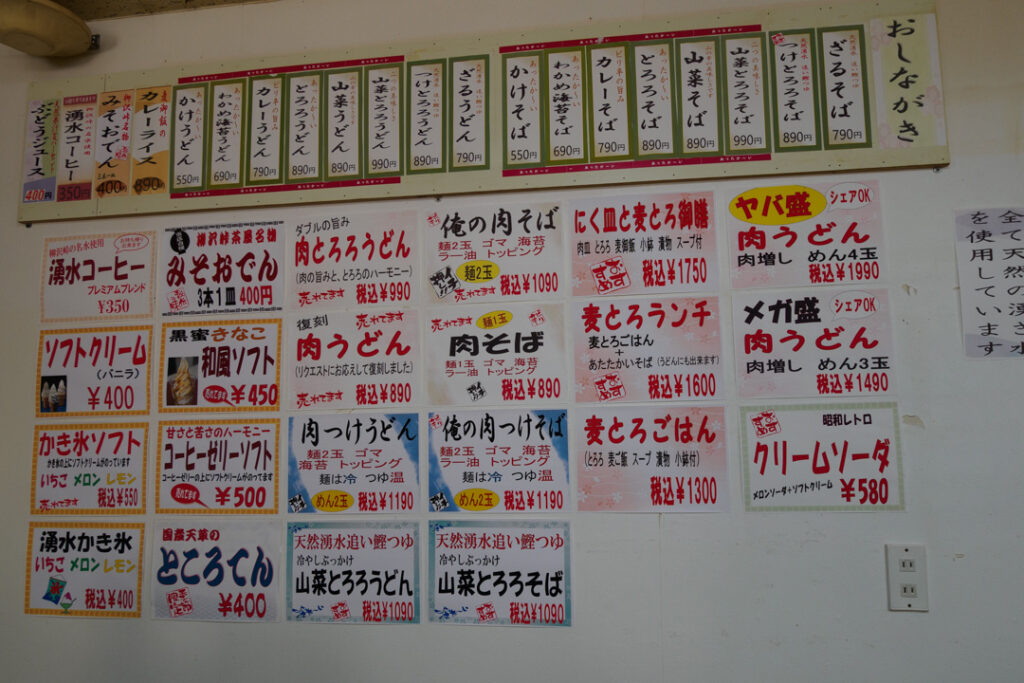 おしながき
ざるそば
790円
つけとろろそば
890円
山菜とろろそば
990円
山菜そば
890円
とろろそば
890円
カレーそば
790円
わかめ海苔そば
690円
かけそば
550円
ざるうどん
790円
つけとろろうどん
890円
山菜とろろうどん
990円
山菜うどん
890円
とろろうどん
890円
カレーうどん
790円
わかめ海苔うどん
690円
かけうどん
550円
カレーライス
890円
柳沢峠名物
みそおでん
400円
湧水コーヒー
350円
ぶどうジュース
400円
柳沢峠の名水使用
湧水コーヒー
プレミアムブレンド
¥350
柳沢峠茶屋名物
みそおでん
3本1皿 400円
ダブルの旨み
肉とろろうどん
(肉の旨みと、とろろのハーモニー)
売れてます 税込¥990
俺の肉そば
麺2玉 ゴマ 海苔
ラー油 トッピング
麺2玉
売れてます 税込¥1090
にく皿と麦とろ御膳
肉皿 とろろ 麦御飯 小鉢 漬物 スープ付
税込¥1750
ヤバ盛
シェアOK
肉うどん
肉増し めん4玉
税込¥1990
ソフトクリーム
(バニラ)
¥400
黒蜜きなこ
和風ソフト
売れてます
¥450
復刻 売れてます
肉うどん
(リクエストにお応えして復刻しました)
税込¥890
売れてます 麺1玉
肉そば
麺1玉 ゴマ 海苔
ラー油 トッピング
税込¥890
麦とろランチ
麦とろごはん
+
あたたかいそば (うどんにも出来ます)
税込¥1600
メガ盛
シェアOK
肉うどん
肉増し めん3玉
税込¥1490
かき氷ソフト
かき氷の上にソフトクリームがのっています
いちご メロン レモン
売れてます 税込¥550
甘さと苦さのハーモニー
コーヒーゼリーソフト
コーヒーゼリーの上にソフトクリームがのってます
売れてます
¥500
肉つけうどん
麺2玉 ゴマ
海苔 トッピング
麺は冷 つゆ温
めん2玉 税込¥1190
俺の肉つけそば
麺2玉 ゴマ 海苔
ラー油 トッピング
麺は冷 つゆ温
めん2玉 税込¥1190
麦とろごはん
(とろろ 麦ご飯 スープ 漬物 小鉢付)
税込¥1300
昭和レトロ
クリームソーダ
メロンソーダ+ソフトクリーム
¥580
湧水かき氷
いちご メロン レモン
税込¥400
国産天草の
ところてん
¥400
天然湧水追い鰹つゆ
冷やしぶっかけ
山菜とろろうどん
税込¥1090
天然湧水追い鰹つゆ
冷やしぶっかけ
山菜とろろそば
税込¥1090
全て天然の湧き水
を使用しています